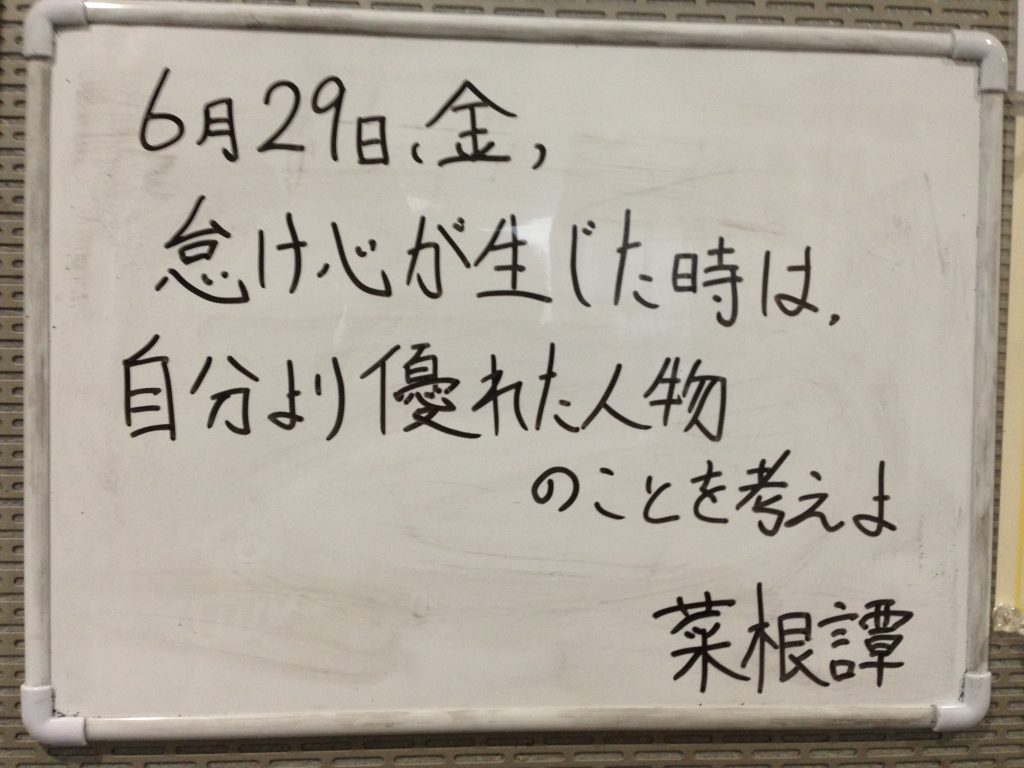 6月29日、金、
怠け心が生じた時は、
自分より優れた人物
のことを考えよ
菜根譚